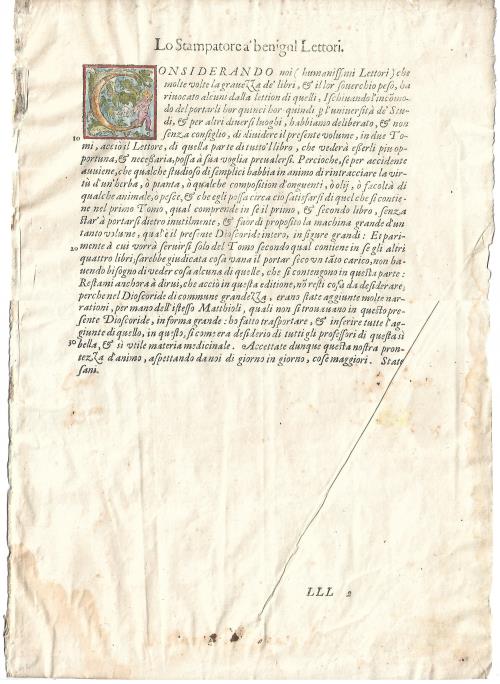 Lo Stampatore a' benigni Lettori.
CONSIDERANDO noi (humanissimi Lettori) che
molte volte la grauezza de' libri, & il lor souerchio peso, ha
riuocato alcuni dalla lettion di quelli, Ischiuando l'incomo-
do del portarli hor quinci hor quindi p l'uniuersità de' Stu-
di, & per altri diuersi luoghi, habbiamo deliberato, & non
10 senza consiglio, di diuidere il presente volume, in due To-
mi, acciò il Lettore, di quella parte di tutto'l libro, che vederà esserli piu op-
portuna, & necessaria, possa à sua voglia preualersi. Percioche, se per accidente
auuiene, che qualche studioso di semplici habbia in animo di rintracciare la vir-
tù d'un'herba, ò pianta, ò qualche composition d'onguenti, ò olij, ò facoltà di
qualche animale, ò pesce, & che egli possa circa ciò satisfarsi di quel che si contie-
ne nel primo Tomo, qual comprende in se il primo, & secondo libro, senza
star' à portarsi dietro inutilmente, & fuor di proposito la machina grande d'un
tanto volume, qual'è il presente Dioscoride intero, in figure grandi: Et pari-
20 mente à cui vorrà seruirsi solo del Tomo secondo qual contiene in se gli altri
quattro libri, sarebbe giudicata cosa vana il portar seco vn tãto carico, non ha-
uendo bisogno di veder cosa alcuna di quelle, che si contengono in questa parte:
Restami anchora à dirui, che acciò in questa editione, nõ resti cosa da desiderare,
perche nel Dioscoride di commune grandezza, erano state aggiunte molte nar-
rationi, per mano dell'istesso Matthioli, quali non si trouauano in questo pre-
sente Dioscoride, in forma grande: ho fatto trasportare, & inserire tutte l'ag-
giunte di quello, in questo, sì com'era desiderio di tutti gli professori di questa sì
30 bella, & sì vtile materia medicinale. Accettate dunque questa nostra pron-
tezza d'animo, aspettando da noi di giorno in giorno, cose maggiori. State
sani.
LLL 2